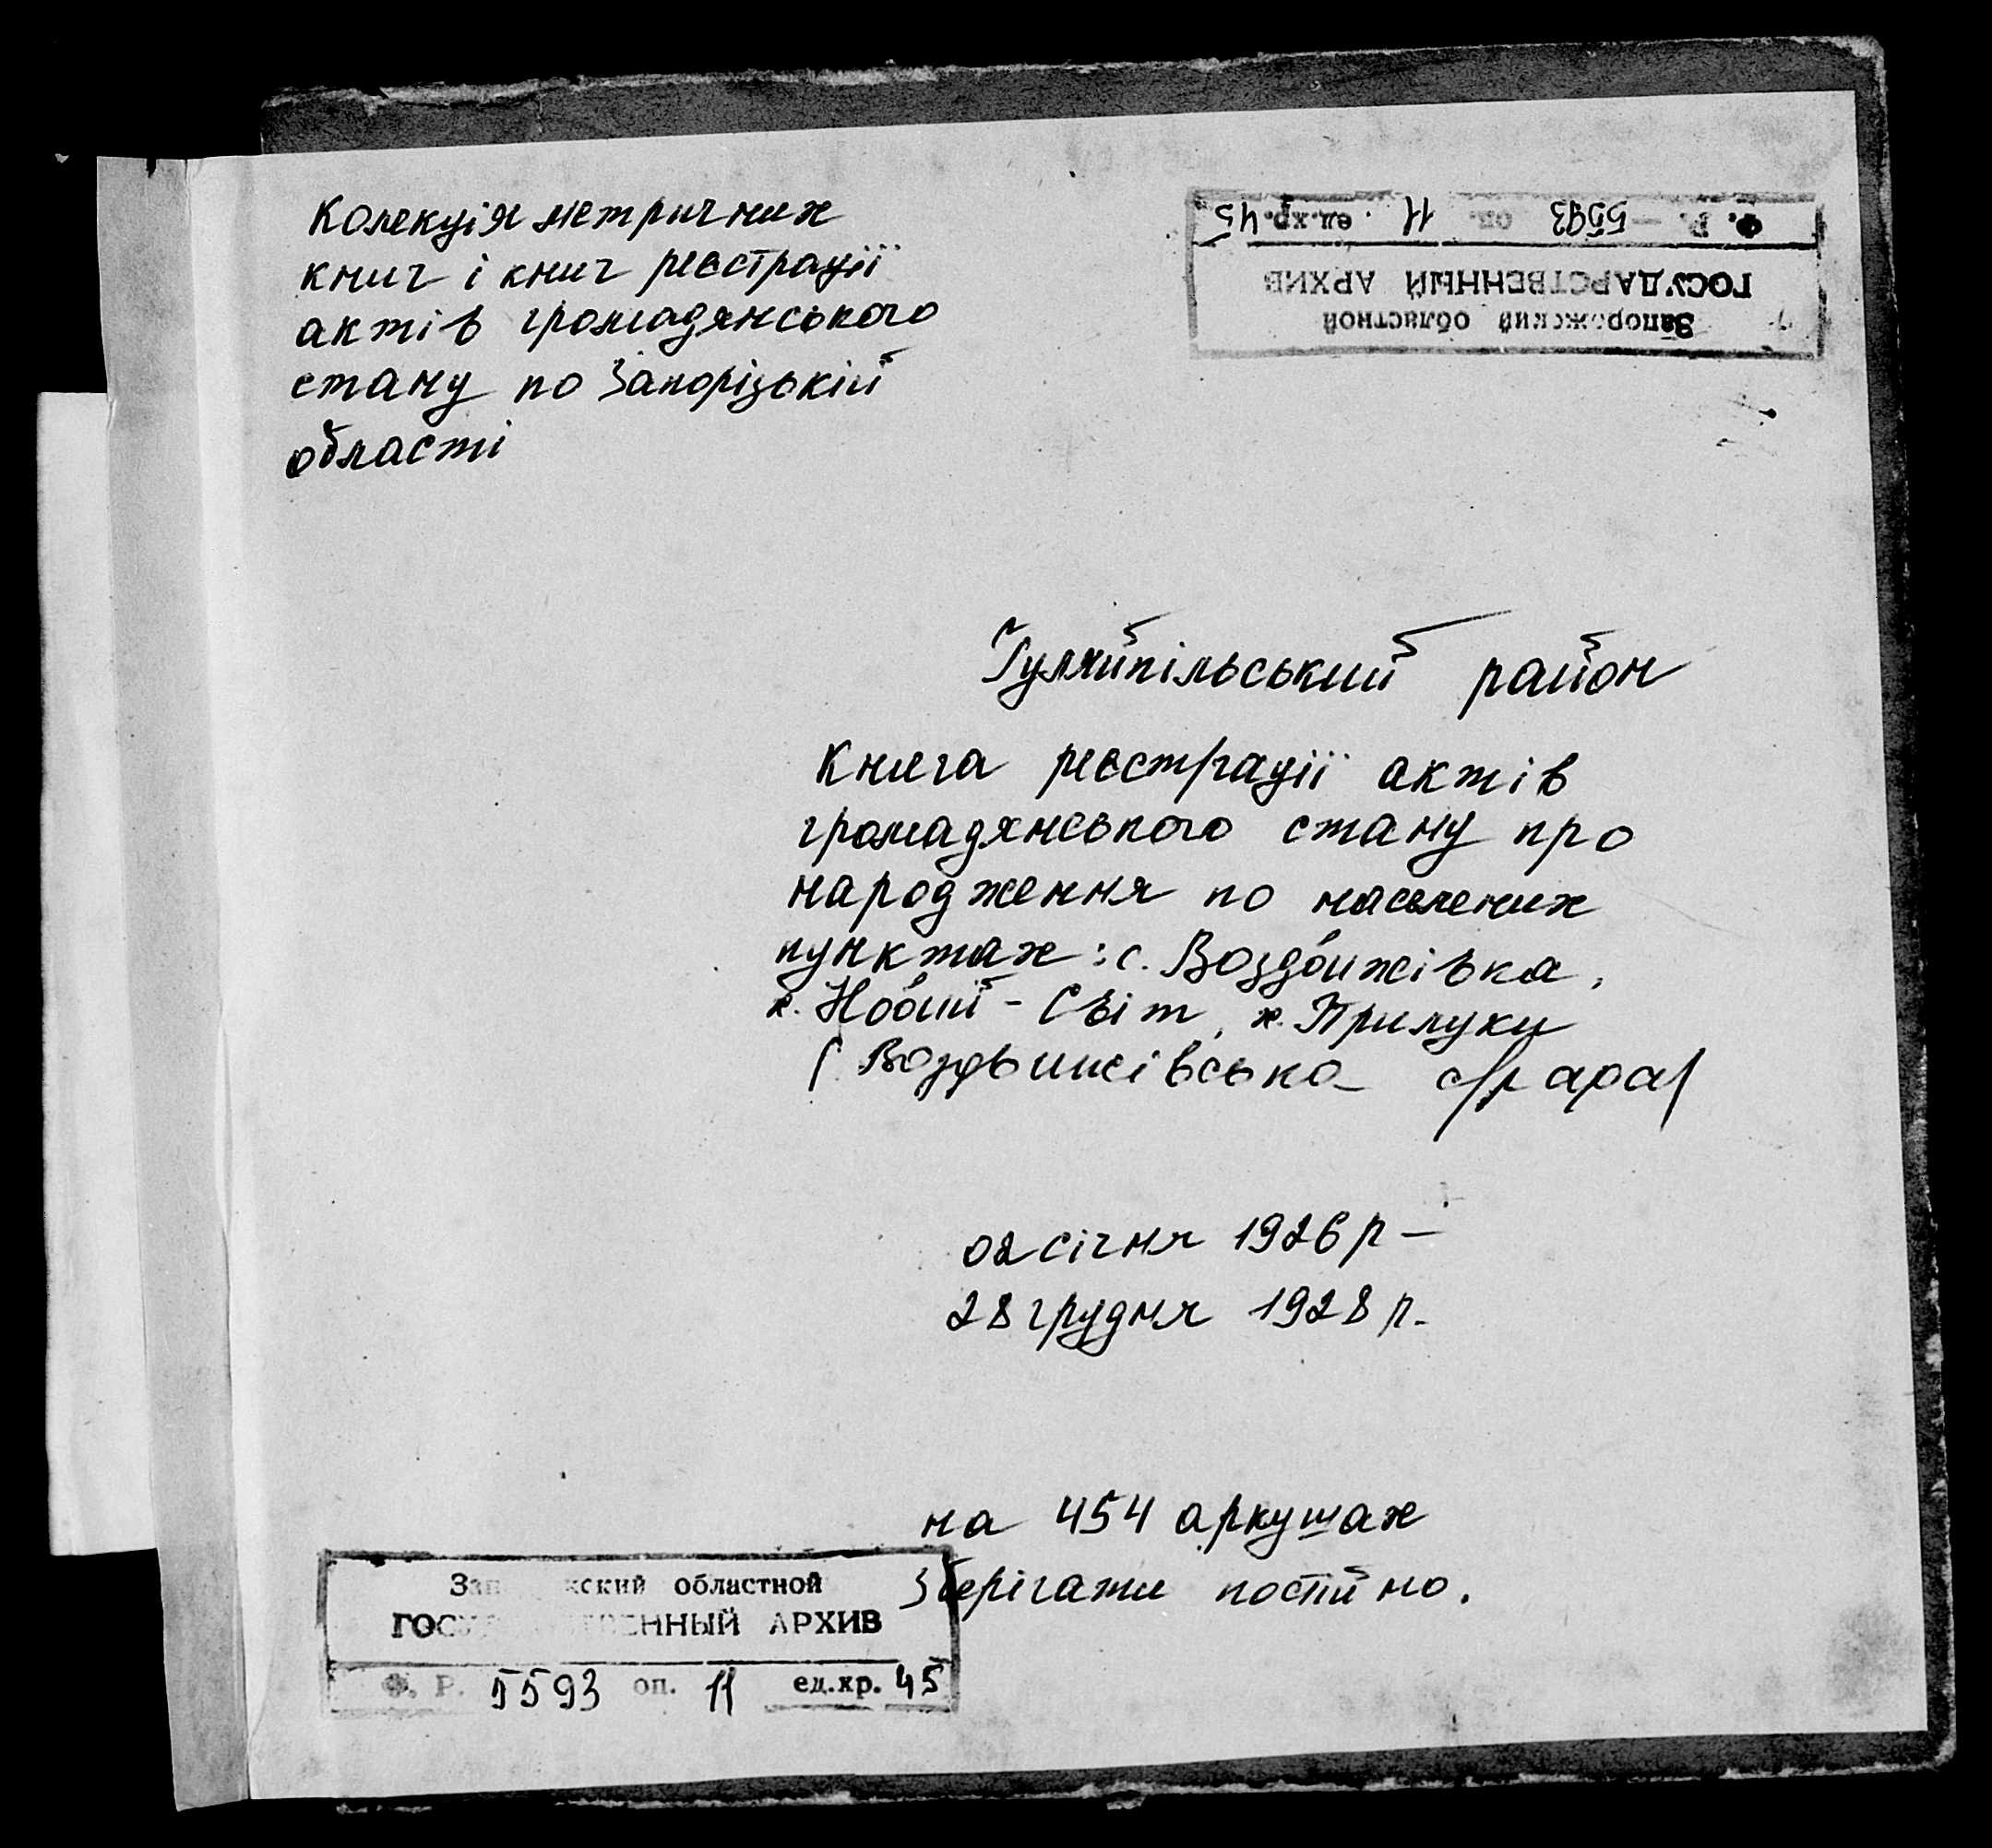 Колекція метричних
книг і книг реєстрації
актів громадянського
стану по Запорізькій
області
Ф. Р. - 5593 оп. 11 ед.хр. 45
ГОСУДАРСТВЕННЫЙ АРХИВ
Запорожский областной
Гуляйпільський район
Книга реєстрації актів
громадянського стану про
народження по населених
пунктах: с. Воздвижівка,
х. Новий-Світ, х. Прилуки
( Воздвижівська с/рада)
02 січня 1926 р -
28 грудня 1928 р.
на 454 аркушах
Зберігати постійно.
Запорожский областной
ГОСУДАРСТВЕННЫЙ АРХИВ
Ф. Р. 5593 оп. 11 ед.хр. 45